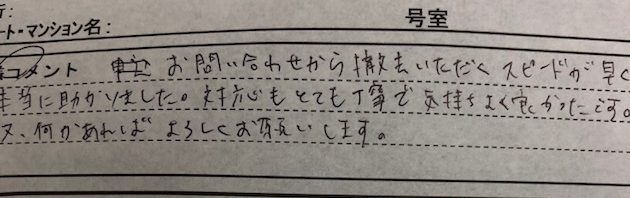 行:
ート・マンション名: 号室
コメント お問い合わせから撤去いただくスピードが早く
本当に助かりました。対応もとても丁寧で気持ちよく良かったです。
又、何かあればよろしくお願いします。